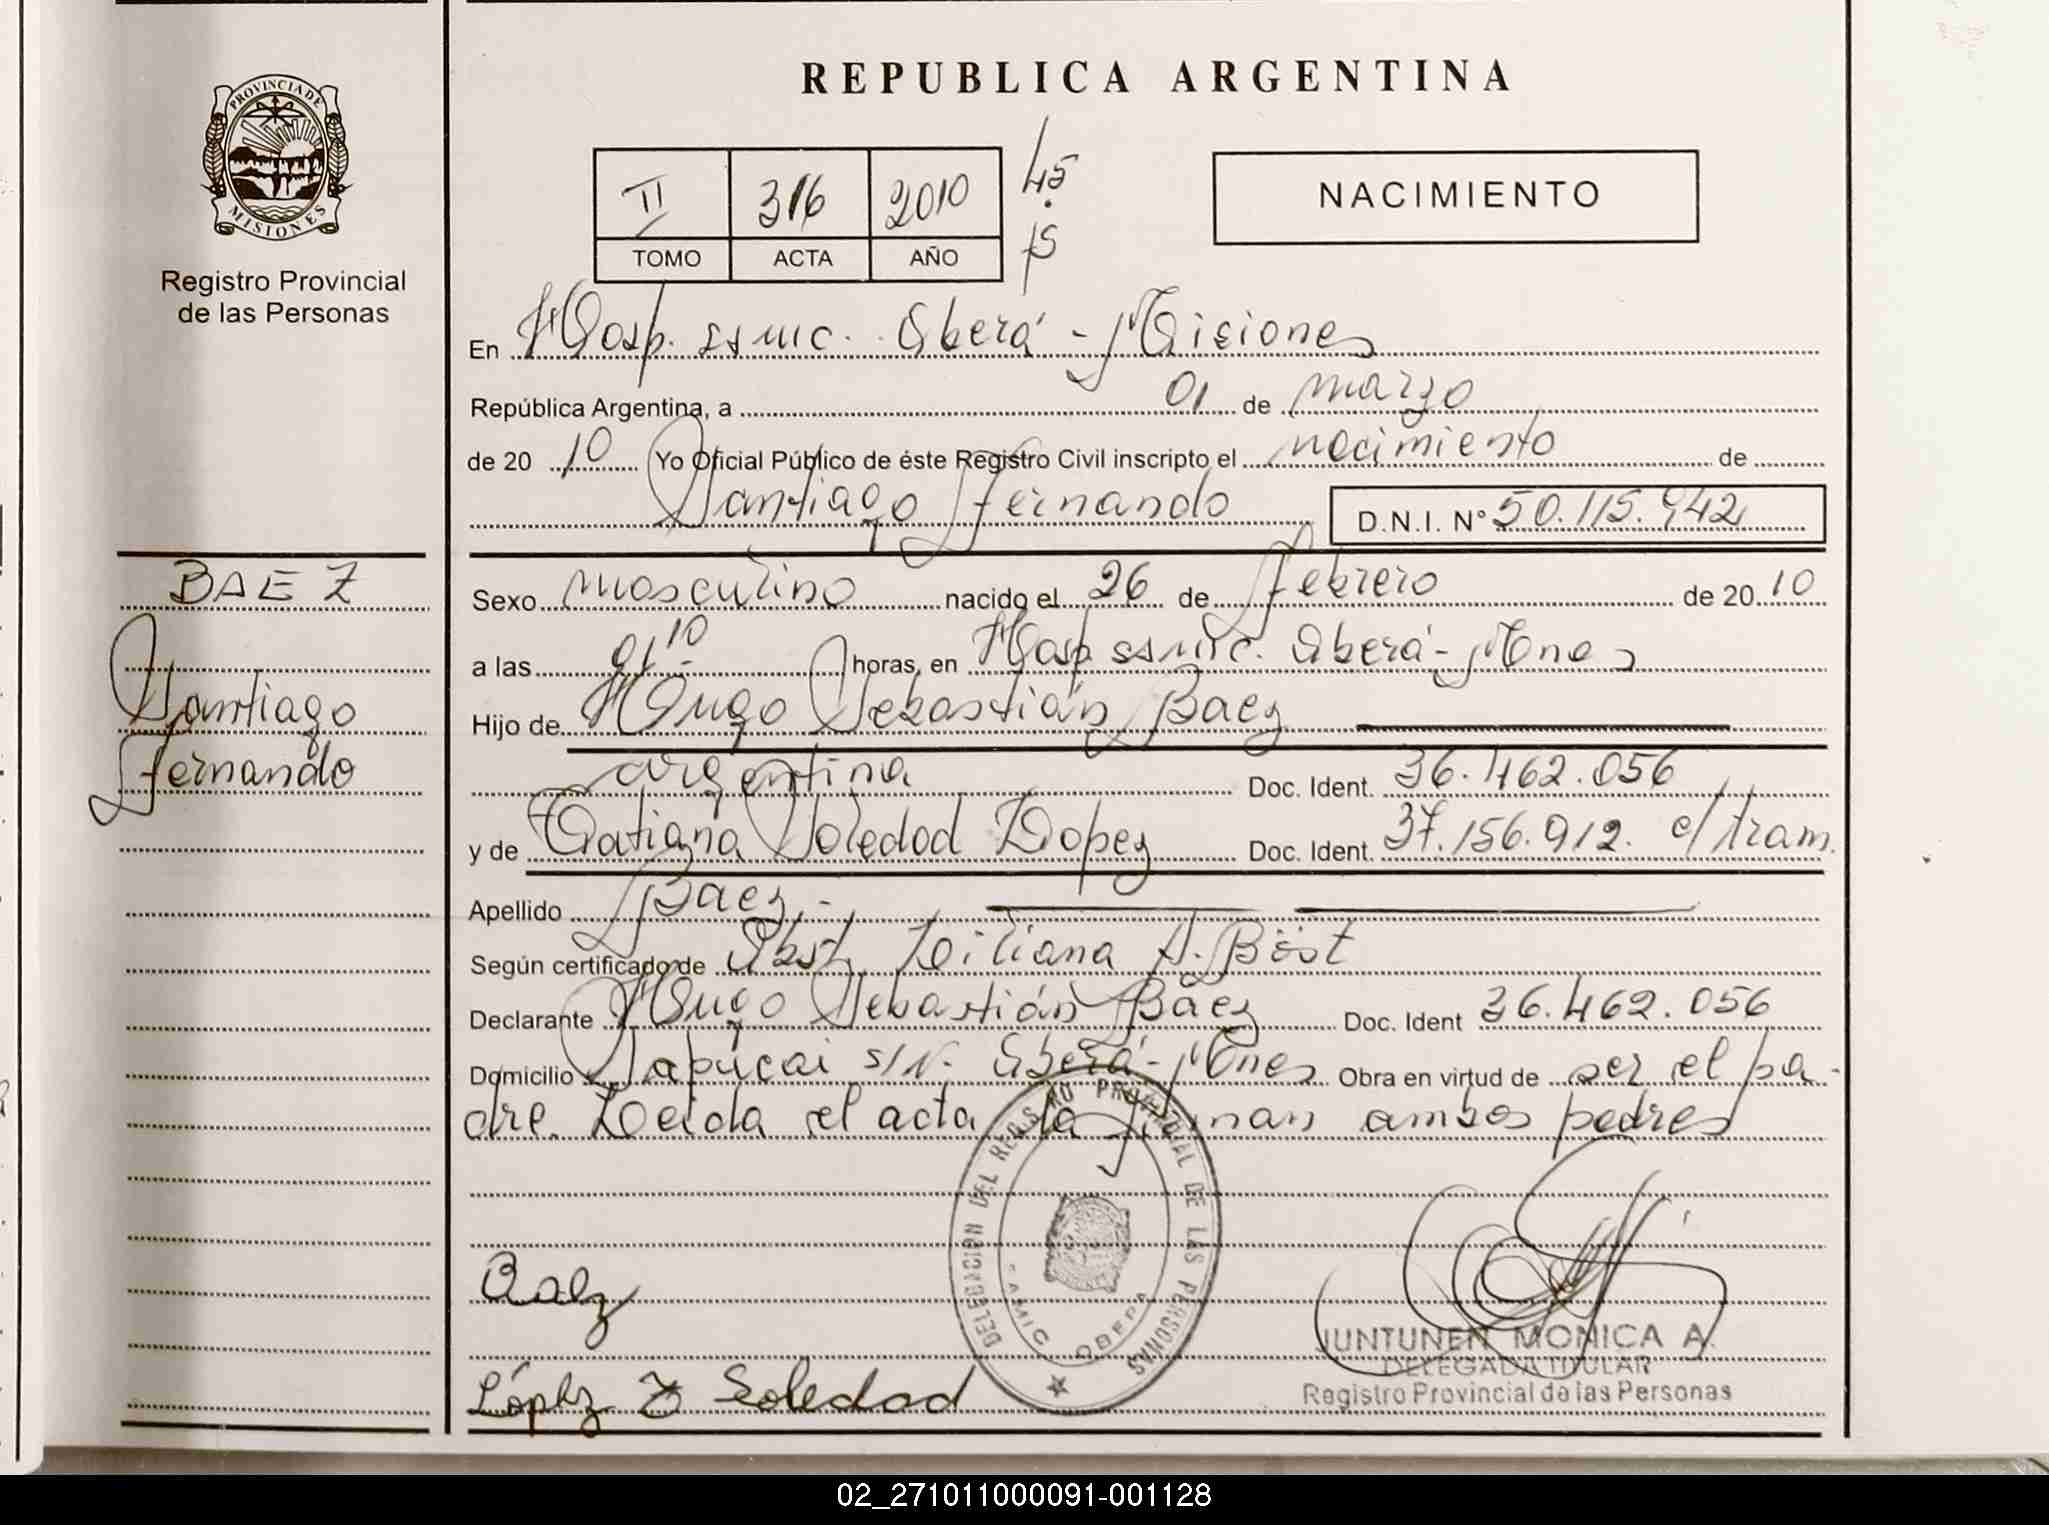 PROVINCIA DE
MISIONES
Registro Provincial
de las Personas
BAEZ
Santiago
Fernando
REPUBLICA ARGENTINA
II 316 2010
TOMO ACTA AÑO
45
NACIMIENTO
En Hosp. ssmc. Oberá - Misiones
República Argentina, a 01 de marzo
de 20 10 Yo Oficial Público de éste Registro Civil inscripto el nacimiento de
Santiago Fernando D.N.I. N° 50.115.942
Sexo masculino nacido el 26 de febrero de 20 10
a las 21 10 horas, en Hosp ssmc. Oberá - Mnes
Hijo de Hugo Sebastián Baez
argentina Doc. Ident. 36.462.056
y de Tatiana Soledad Lopez Doc. Ident. 37.156.912. e/tram.
Apellido Baez.-
Según certificado de Obst. Liliana A. Böst
Declarante Hugo Sebastián Baez Doc. Ident 36.462.056
Domicilio Sapucai s/N. Oberá - Mnes Obra en virtud de ser el pa-
dre. Leida el acta la firman ambos padres
DELEGACION DEL REGISTRO PROVINCIAL DE LAS PERSONAS
OBERA
Baez
López T Soledad
JUNTUNEN MONICA A.
DELEGADA TITULAR
Registro Provincial de las Personas
02_271011000091-001128